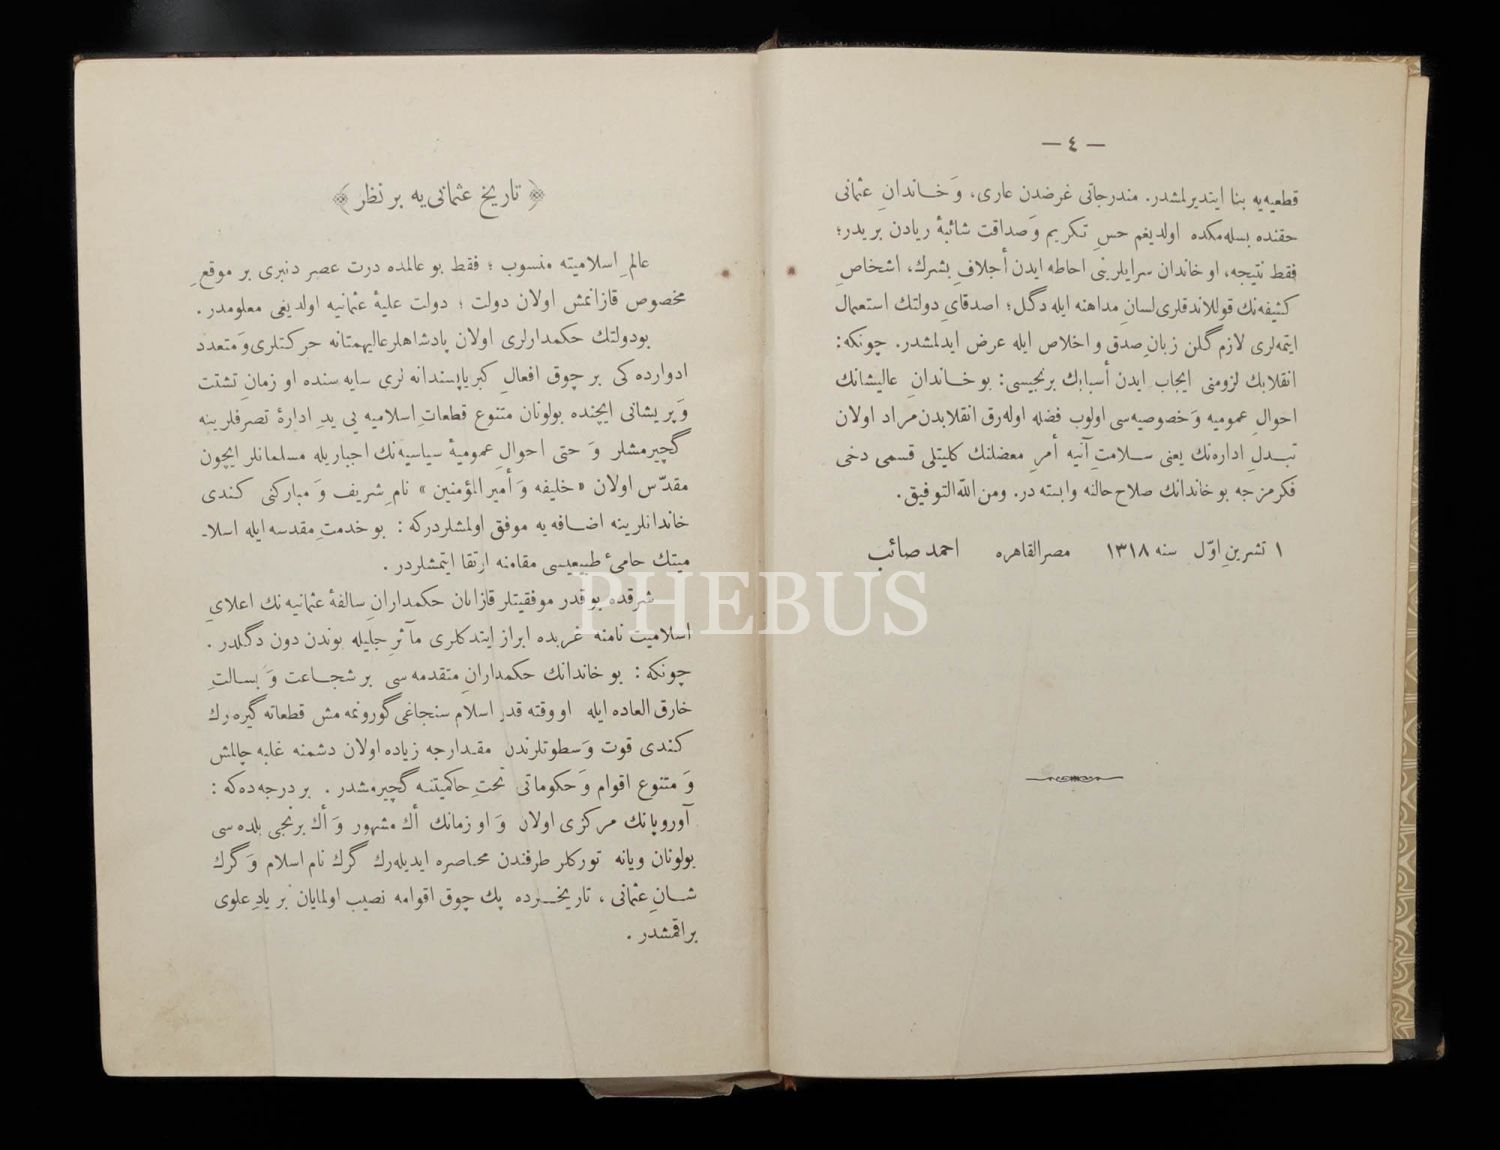 — ٤ —
قطعیه‌یه بنا ایتدیرلمشدر. مندرجاتی غرضدن عاری، وَ خاندانِ عثمانی
حقنده بسله‌مکده اولدیغم حسِ تکریم وَ صداقت شائبهٔ ریادن بریدر؛
فقط نتیجه، او خاندان سرایلرینی احاطه ایدن أجلافِ بشرك، اشخاصِ
کثیفه‌نك قوللاندقلری لسانِ مداهنه ایله دگل؛ اصدقایِ دولتك استعمال
ایتمه‌لری لازم گلن زبانِ صدق و اخلاص ایله عرض ایدلمشدر. چونکه:
انقلابك لزومنی ایجاب ایدن أسبابك برنجیسی: بو خاندانِ عالیشانك
احوالِ عمومیه وَ خصوصیه‌سی اولوب فضله اوله‌رق انقلابدن مراد اولان
تبدلِ اداره‌نك یعنی سلامتِ آتیه أمرِ معضلنك کلیتلی قسمی دخی
فکرمزجه بو خاندانك صلاح حالنه وابسته در. ومن الله التوفیق.
١ تشرینِ اوّل سنه ١٣١٨ مصر القاهره احمد صائب
﴿ تاریخ عثمانی‌یه بر نظر ﴾
عالمِ اسلامیته منسوب ؛ فقط بو عالمده درت عصر دنبری بر موقعِ
مخصوص قازانمش اولان دولت ؛ دولت علیهٔ عثمانیه اولدیغی معلومدر .
بودولتك حکمدارلری اولان پادشاهلر عالیهمتانه حرکتلری وَ متعدد
ادوارده کی بر چوق افعالِ کبریاپسندانه لری سایه سنده او زمانِ تشتت
وَ پریشانی ایچنده بولونان متنوع قطعاتِ اسلامیه یی یدِ ادارهٔ تصرفلرینه
گچیرمشلر وَ حتی احوالِ عمومیهٔ سیاسیه‌نك اجباریله مسلمانلر ایچون
مقدّس اولان « خلیفه وَ أمیر المؤمنین » نامِ شریف وَ مبارکنی کندی
خاندانلرینه اضافه یه موفق اولمشلردرکه : بو خدمتِ مقدسه ایله اسلا-
میتك حامیٔ طبیعیسی مقامنه ارتقا ایتمشلردر .
شرقده بو قدر موفقیتلر قازانان حکمدارانِ سالفهٔ عثمانیه نك اعلایِ
اسلامیت نامنه غربده ابراز ایتدکلری مآثرِ جلیله بوندن دون دگلدر .
چونکه : بو خاندانك حکمدارانِ متقدمه سی بر شجاعت وَ بسالتِ
خارق العاده ایله او وقته قدر اسلام سنجاغی گورونمه مش قطعاته گیره رك
کندی قوت وَ سطوتلرندن مقدارجه زیاده اولان دشمنه غلبه چالمش
وَ متنوع اقوام وَ حکوماتی تحتِ حاکمیتنه گچیرمشدر . بر درجه ده که :
آوروپانك مرکزی اولان وَ او زمانك أك مشهور وَ أك برنجی بلده سی
بولونان ویانه تورکلر طرفندن محاصره ایدیله‌رك گرك نام اسلام وَ گرك
شانِ عثمانی ، تاریخـرده پك چوق اقوامه نصیب اولمایان بر یادِ علوی
براقمشدر .
PHEBUS